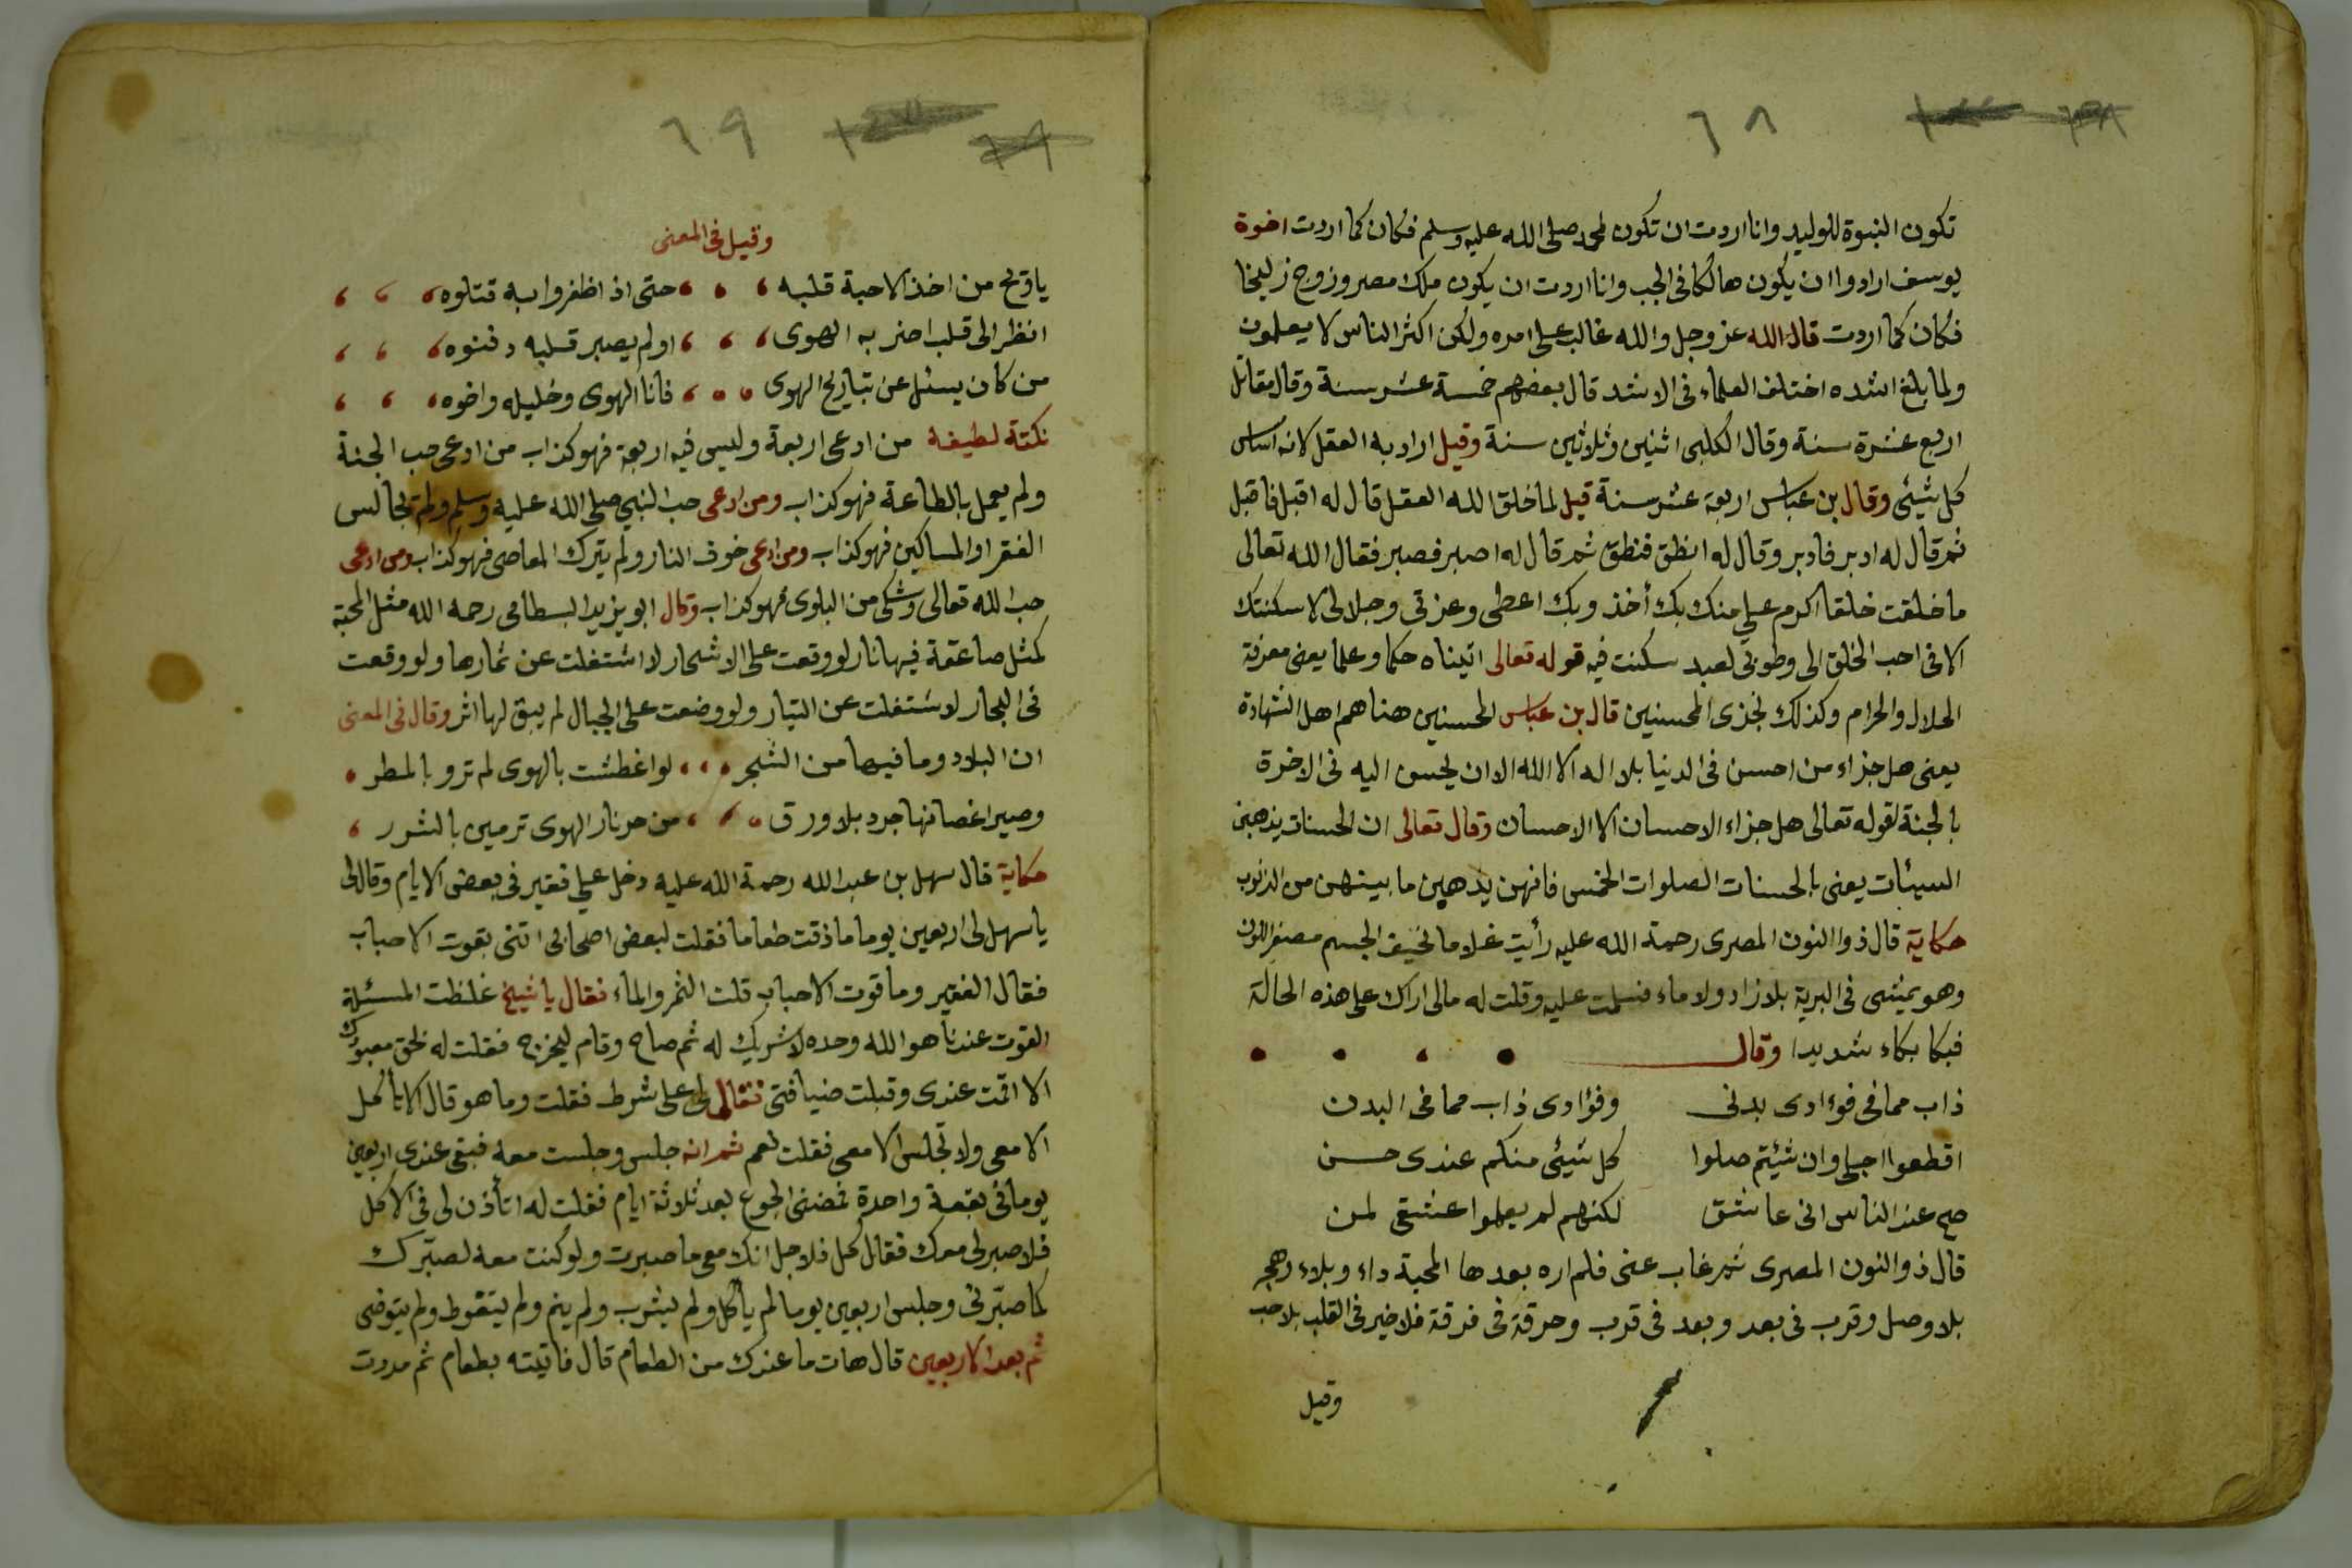 ٦٨
تكون النبوة للوليد وانا اردت ان تكون لمحمد صلى الله عليه وسلم فكان كما اردت اخوة
يوسف ارادوا ان يكون هالكا فى الجب وانا اردت ان يكون ملك مصر وزوج زليخا
فكان كما اردت قال الله عز وجل والله غالب على امره ولكن اكثر الناس لا يعلمون
ولما بلغ اشده اختلف العلماء فى الاشد قال بعضهم خمسة عشر سنة وقال مقاتل
اربع عشرة سنة وقال الكلبى اثنين وثلاثين سنة وقيل اراد به العقل لانه اساس
كل شيئ وقال بن عباس اربعة عشر سنة قيل لما خلق الله العقل قال له اقبل فاقبل
ثم قال له ادبر فادبر وقال له انطق فنطق ثم قال له اصبر فصبر فقال الله تعالى
ما خلقت خلقا اكرم على منك بك أخذ وبك اعطى وعزتى وجلالى لا سكنتك
الا فى احب الخلق الى وطوبى لعبد سكنت فيه قوله تعالى اتيناه حكما وعلما يعنى معرفة
الحلال والحرام وكذلك نجزى المحسنين قال بن عباس المحسنين هنا هم اهل الشهادة
يعنى هل جزاء من احسن فى الدنيا بلا اله الا الله الا ان يحسن اليه فى الاخرة
بالجنة لقوله تعالى هل جزاء الاحسان الا الاحسان وقال تعالى ان الحسنات يذهبن
السيئات يعنى بالحسنات الصلوات الخمس فانهن يذهبن ما بينهن من الذنوب
حكاية قال ذوا النون المصرى رحمة الله عليه رأيت غلاما نحيف الجسم مصفر اللون
وهو يمشى فى البرية بلا زاد ولا ماء فسلمت عليه وقلت له مالى اراك على هذه الحالة
فبكا بكاء شديدا وقال
ذاب مما فى فوءادى بدنى وفؤادى ذاب مما فى البدن
اقطعوا حبلى وان شيئتم صلوا كل شيئ منكم عندى حسن
صح عند الناس انى عاشق لكنهم لم يعلموا عشقى لمن
قال ذو النون المصرى ثم غاب عنى فلم اره بعدها المحبة داء وبلاء وهجر
بلا وصل وقرب فى بعد وبعد فى قرب وحرقة فى فرقة فلا خير فى القلب بلا حب
وقيل
٦٩
وقيل فى المعنى
ياويح من اخذ الاحبة قلبه حتى اذ اظفروا به قتلوه
انظر الى قلب اضر به الهوى اولم يصبر قلبه دفنوه
من كان يسئل عن تباريح الهوى فانا الهوى وخليله واخوه
نكتة لطيفة من ادعى اربعة وليس فيه اربعة فهو كذاب من ادعى حب الجنة
ولم يعمل بالطاعة فهو كذاب ومن ادعى حب النبي صلى الله عليه وسلم ولم يجالس
الفقرا والمساكين فهو كذاب ومن ادعى خوف النار ولم يترك المعاصى فهو كذاب ومن ادعى
حب الله تعالى وشكى من البلوى فهو كذاب وقال ابو يزيد البسطامى رحمه الله مثل المحبة
كمثل صاعقة فيها نار لو وقعت على الاشجار لا اشتغلت عن ثمارها ولو وقعت
فى البحار لاشتغلت عن التيار ولو وضعت على الجبال لم يبق لها اثر وقال فى المعنى
ان البلاد وما فيها من الشجر لو اغطشت بالهوى لم ترو بالمطر
وصير اغصانها جرد بلا ورق من حر نار الهوى ترمين بالشرر
حكاية قال سهل بن عبد الله رحمة الله عليه دخل على فقير فى بعض الايام وقال لى
يا سهل لى اربعين يوما ما ذقت طعاما فقلت لبعض اصحابى اتنى بقوت الاحباب
فقال الفقير وما قوت الاحباب قلت الثمر والماء فقال يا شيخ غلظت المسئلة
القوت عندنا هو الله وحده لا شريك له ثم صاح وقام ليخرج فقلت له بحق معبودك
الا اقمت عندى وقبلت ضيافتى فقال لى على شرط فقلت وما هو قال الا تأكل
الا معى ولا تجلس الا معى فقلت نعم ثم انه جلس وجلست معه فبقى عندى اربعين
يوما فى بقعة واحدة فمضنى الجوع بعد ثلاثة ايام فقلت له اتأذن لى فى الاكل
فلا صبر لى معك فقال كل فلاجل انك معى ما صبرت ولو كنت معه لصبّرك
كما صبّرنى وجلس اربعين يوما لم يأكل ولم يشرب ولم ينم ولم يتغوط ولم يتوضى
ثم بعد الاربعين قال هات ما عندك من الطعام قال فاتيته بطعام ثم مددت